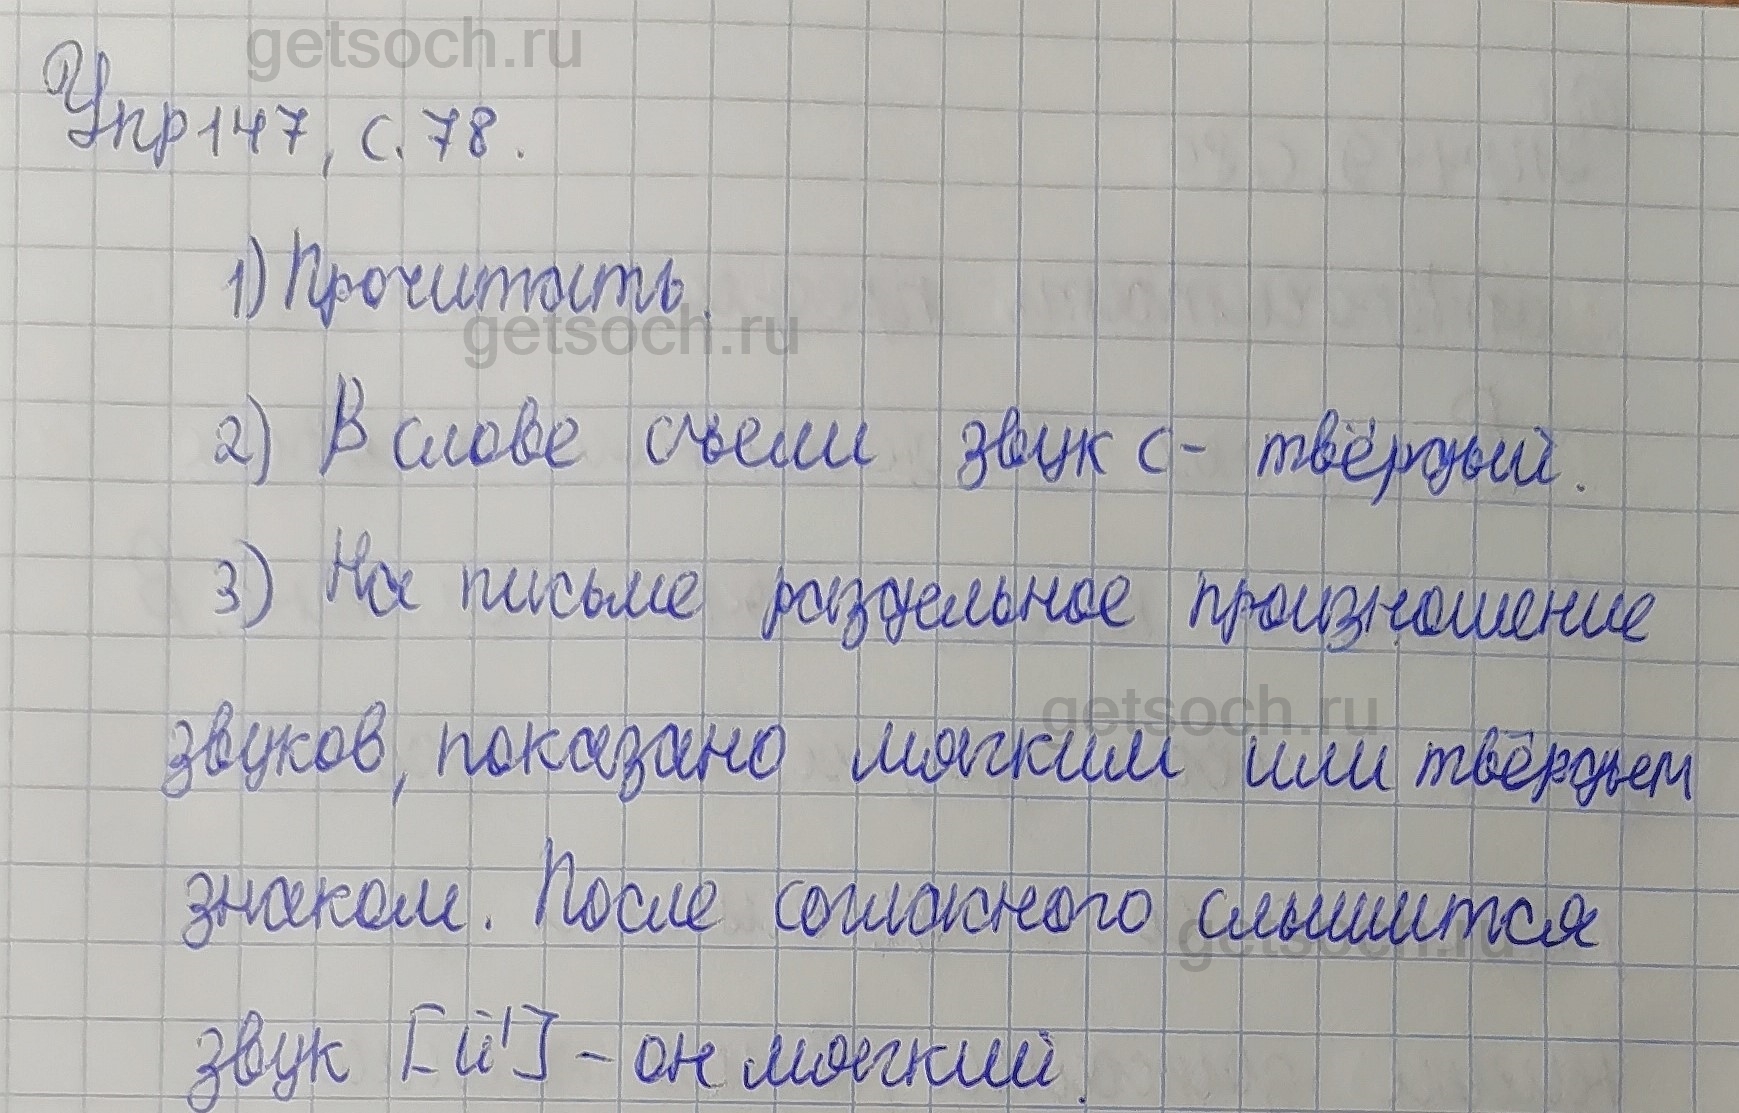 getsoch.ru
Упр 147, с. 78.
1) Прочитать.
getsoch.ru
2) В слове съели звук с - твёрдый.
3) На письме раздельное произношение
getsoch.ru
звуков, показано мягким или твёрдым
знаком. После согласного слышится
getsoch.ru
звук [й'] - он мягкий.